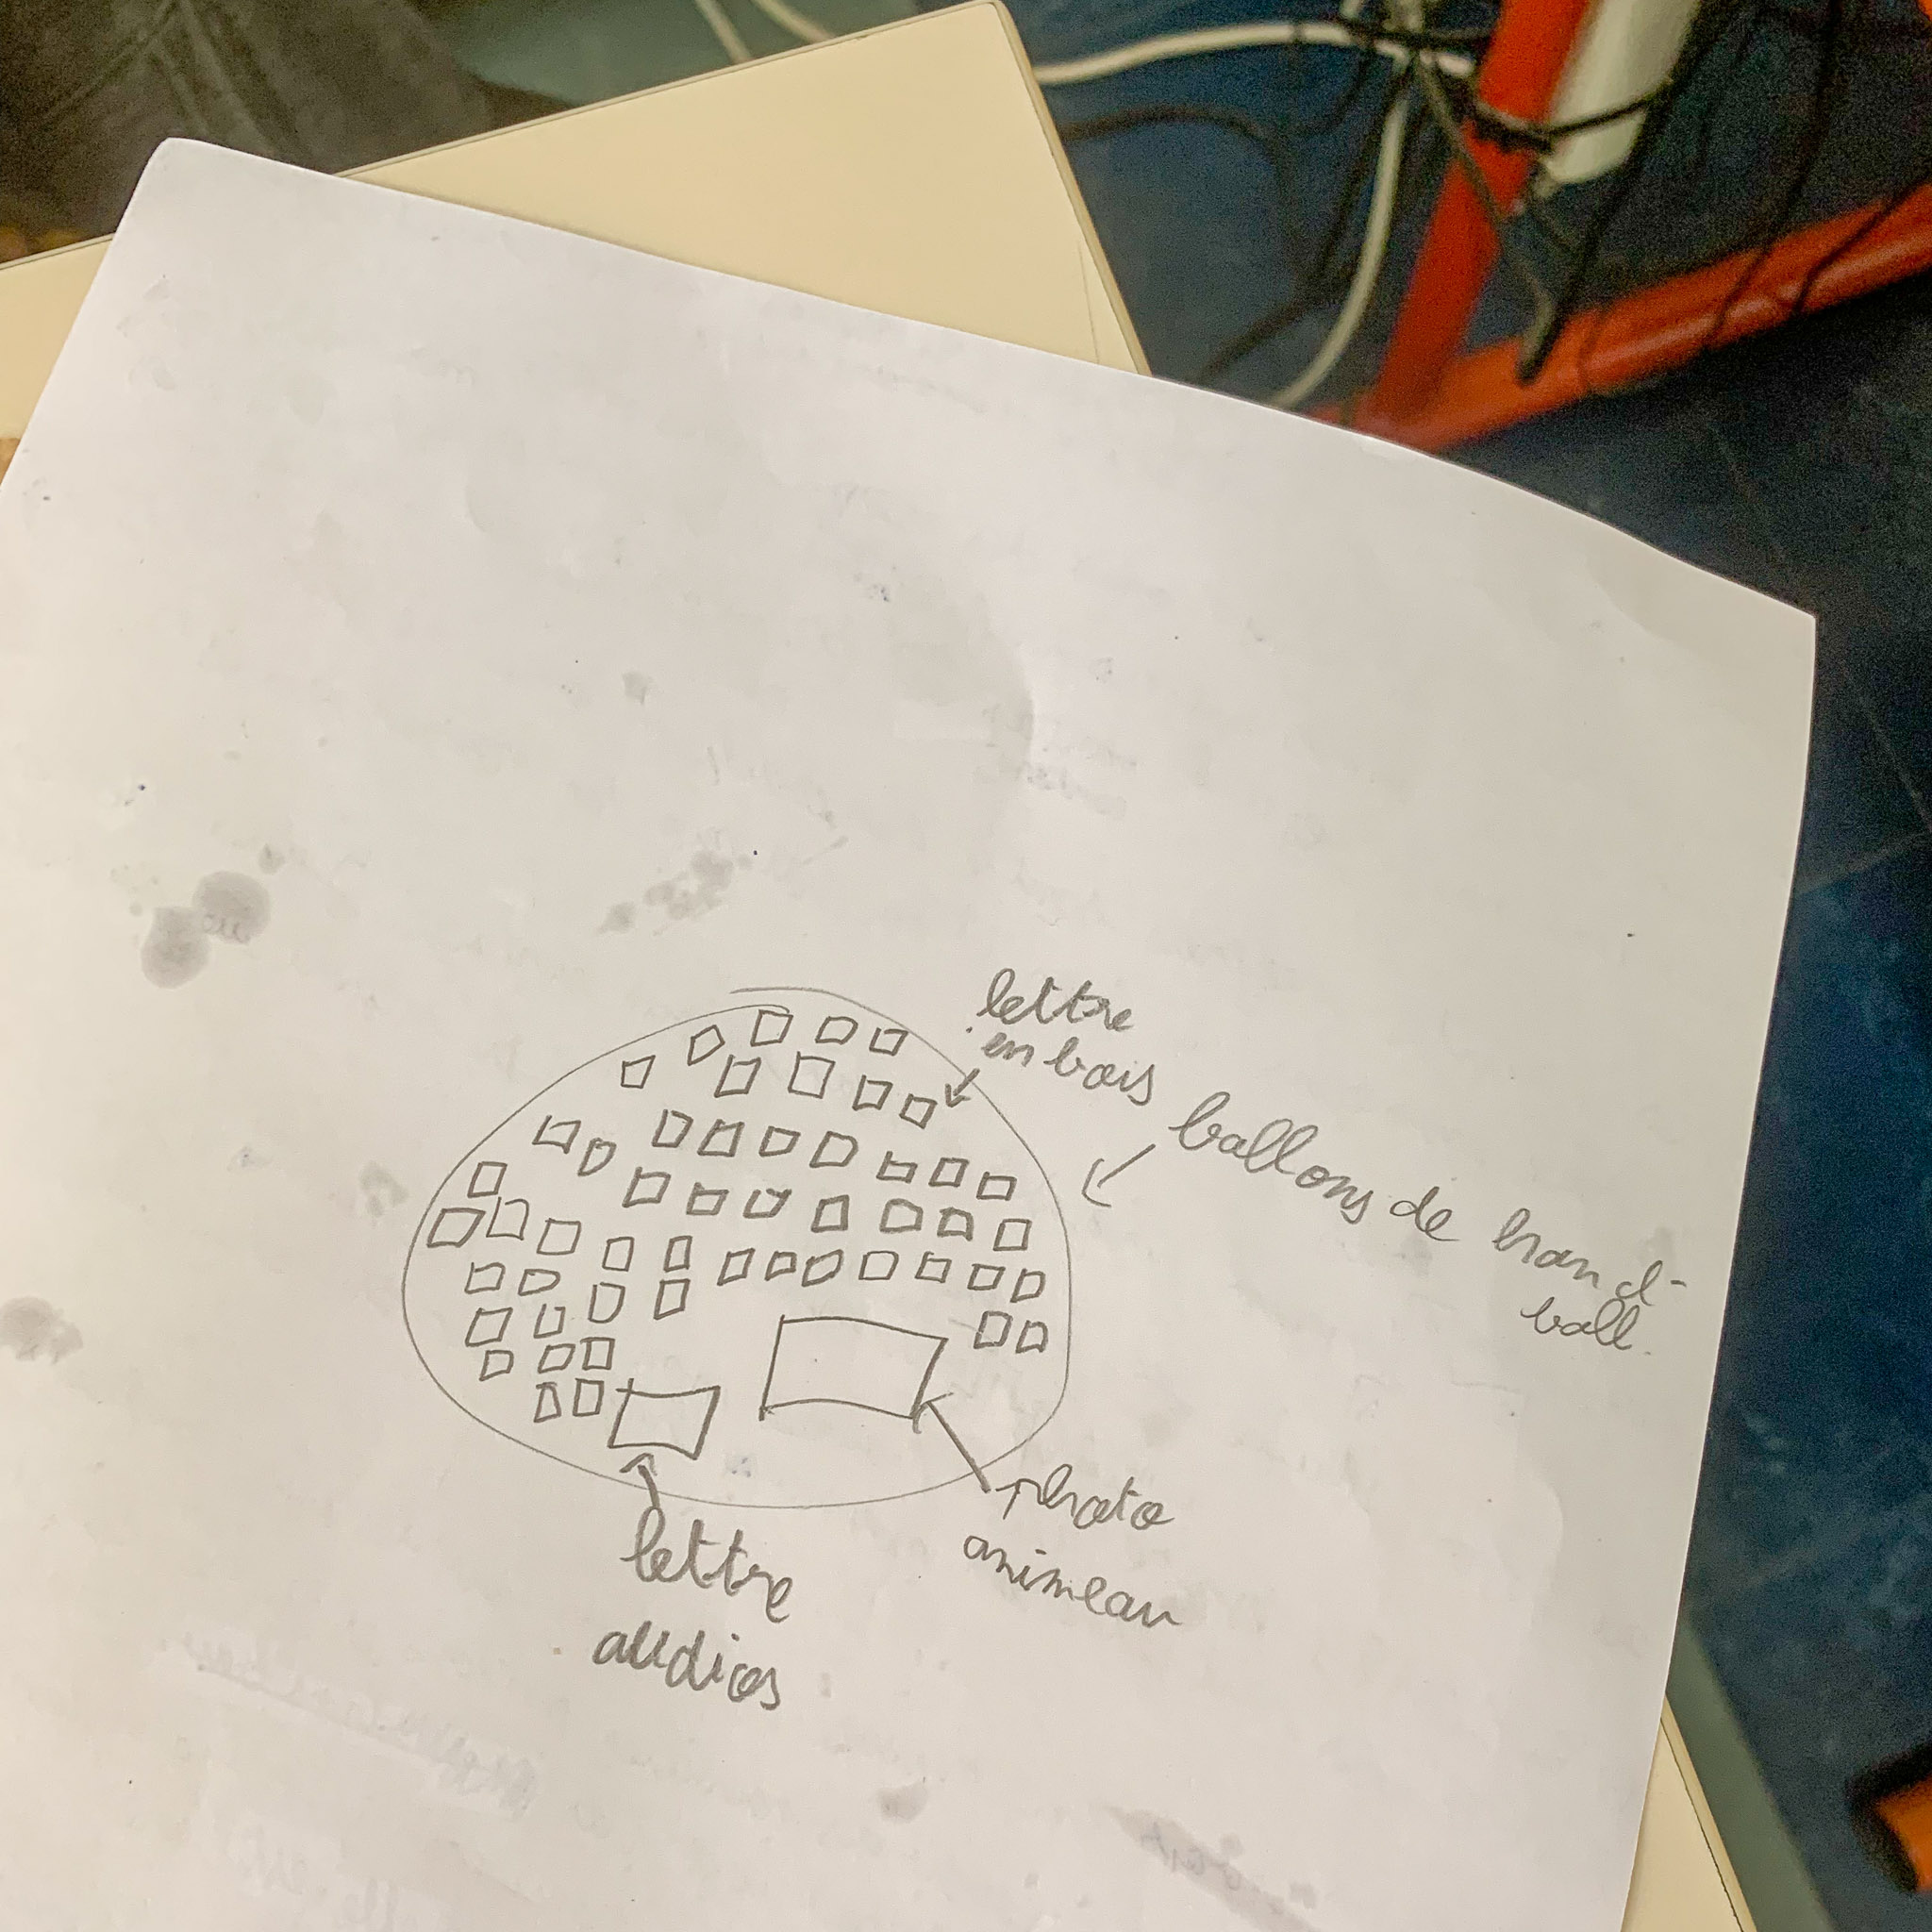 lettre
en bois
ballons de hand-
ball.
photo
animeau
lettre
audios